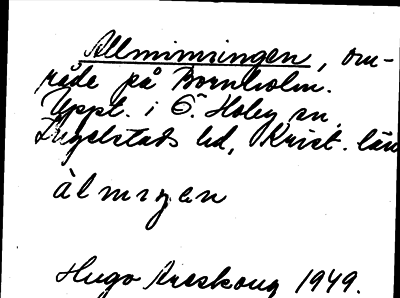 Allmimingen, om-
råde på Bornholm.
Uppt. i Ö. Hoby sn,
Ingelstads hd, Krist. län
àlmıŋen
Hugo Areskoug 1949.